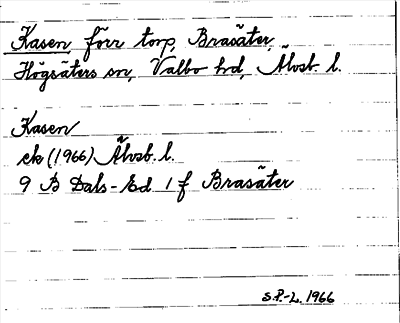 Kasen, förr torp, Brasäter,
Högsäters sn, Valbo hd, Älvsb. l.
Kasen
ek (1966) Älvsb. l.
9 B Dals-Ed 1 f Brasäter
S.P.-L. 1966